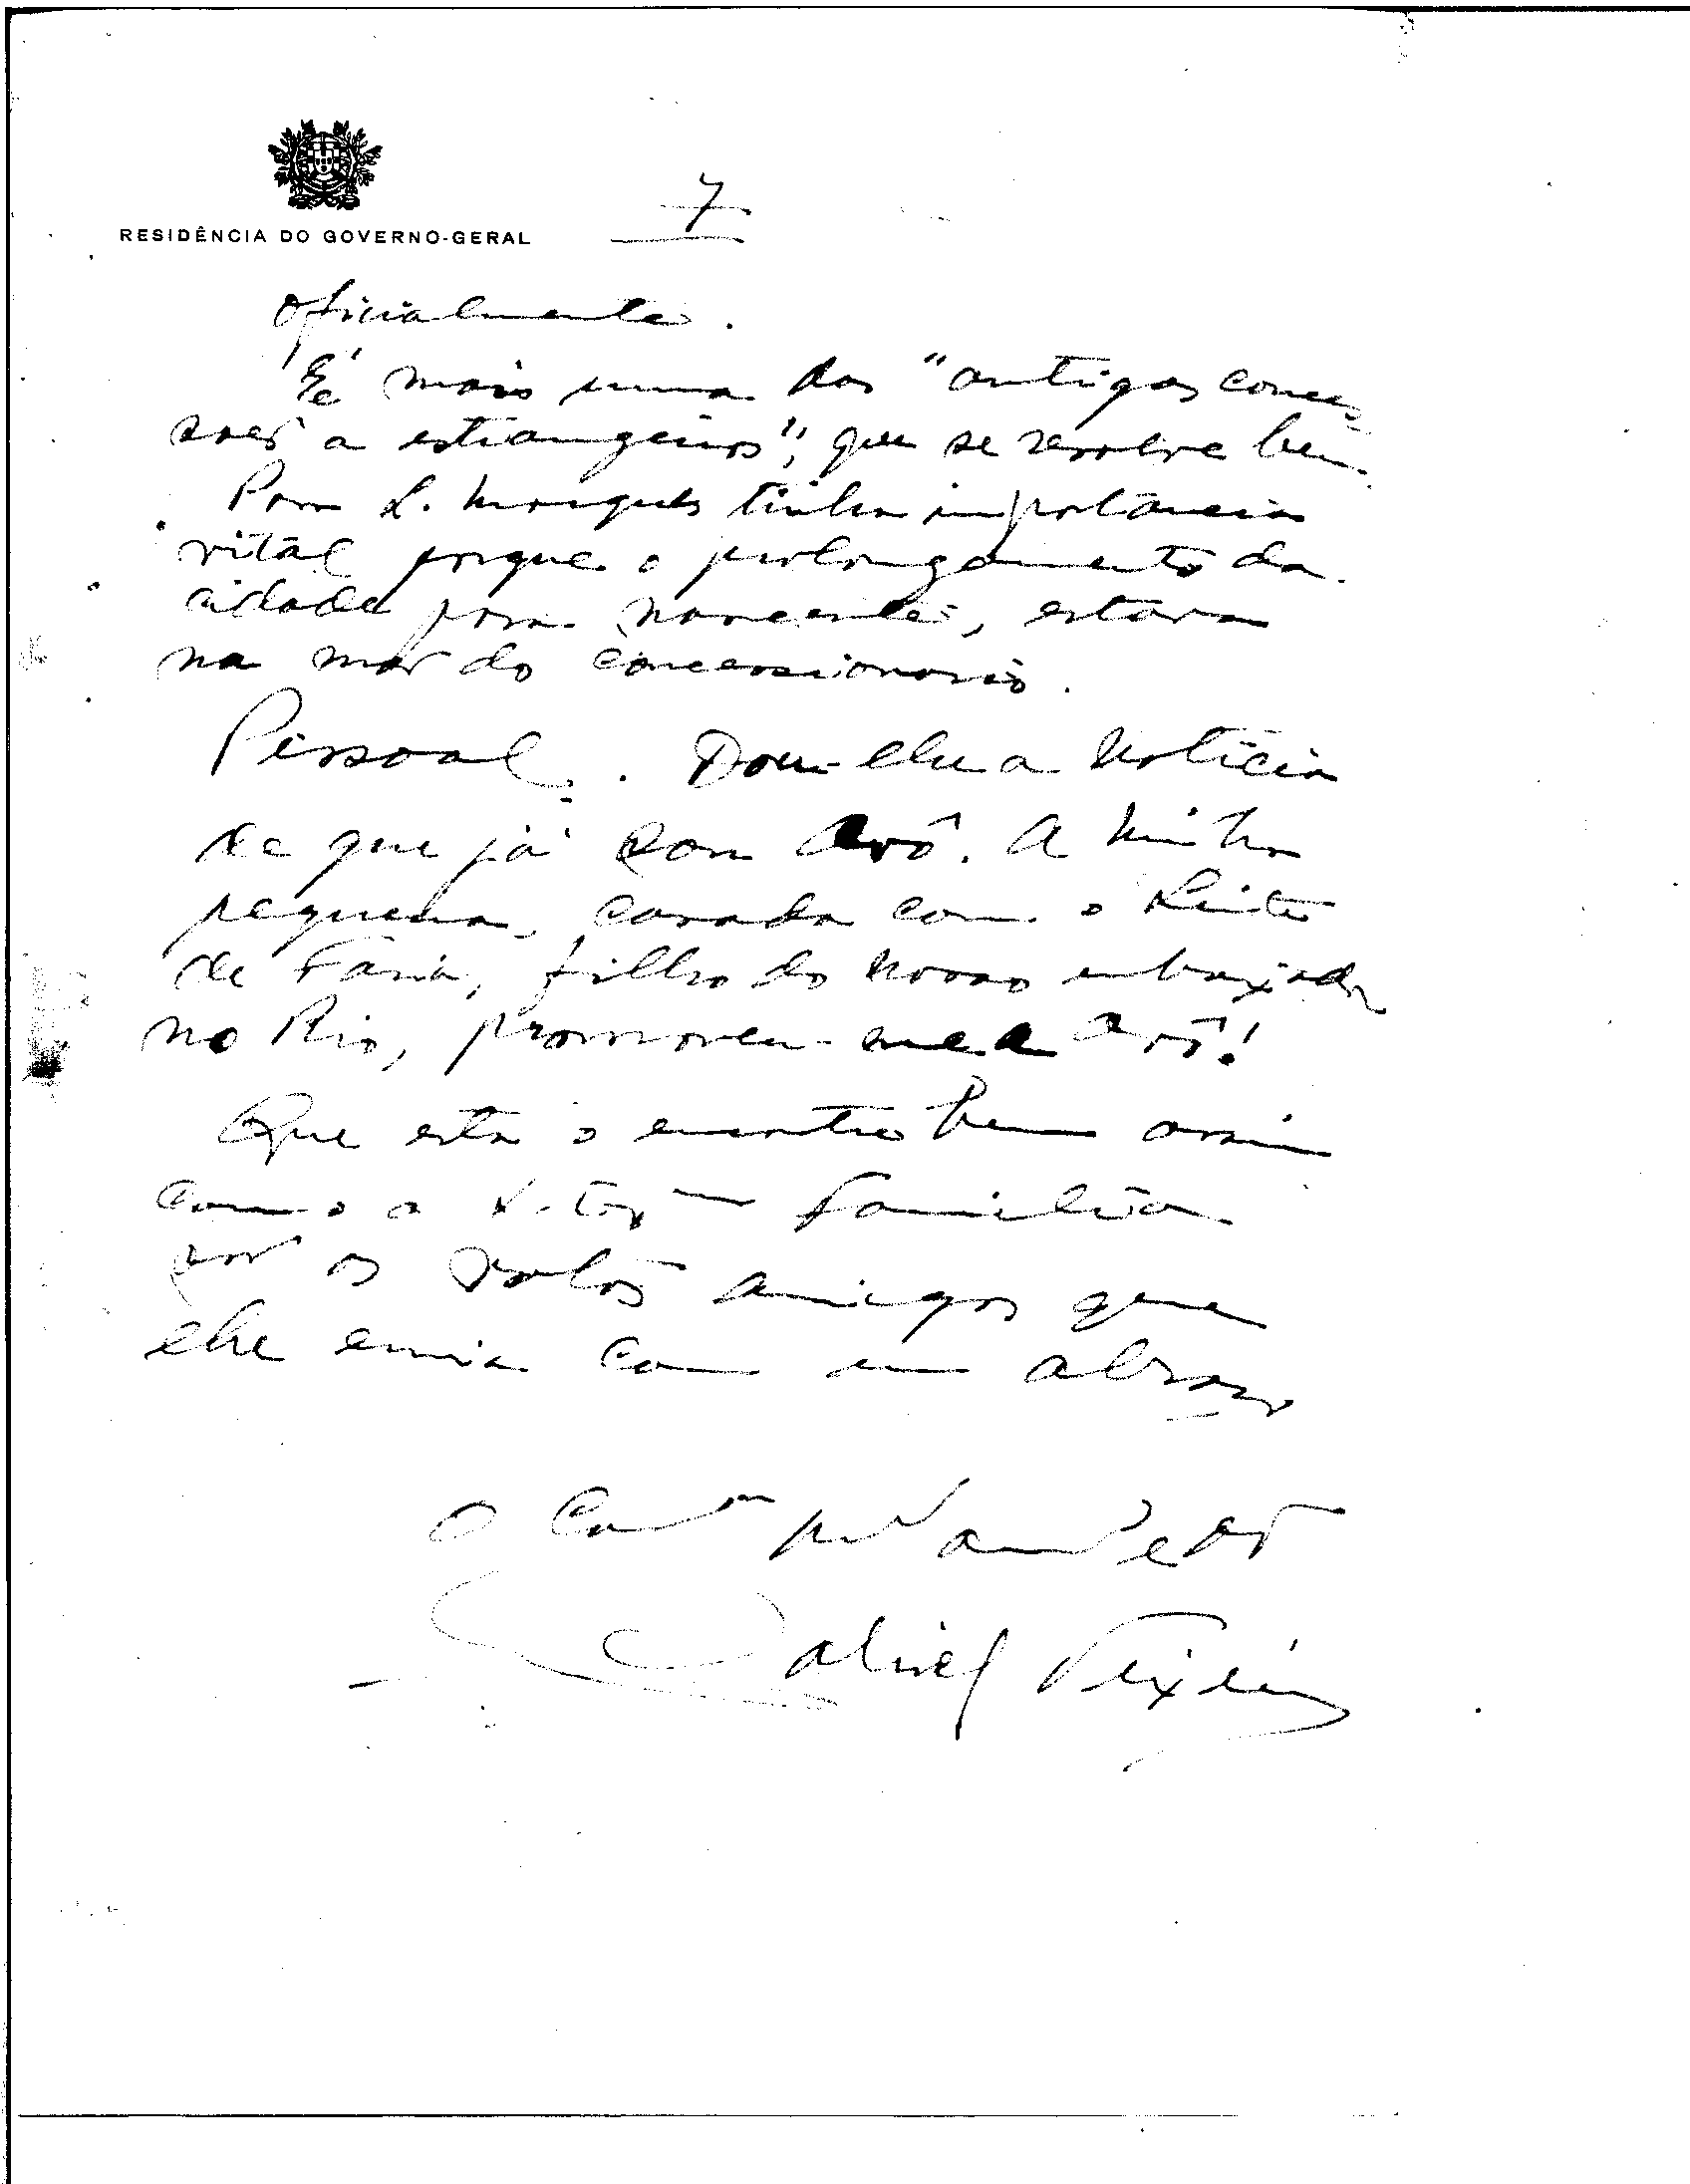 7
RESIDÊNCIA DO GOVERNO-GERAL
Oficialmente.
É mais uma das "antigas conces-
sões a estrangeiros", que se resolve bem.
Para L. Marques tinha importancia
vital porque o prolongamento da
cidade para nascente, estava
na mão do concessionario.
Pessoal. Dou-lhe a noticia
de que já sou Avô. A minha
pequena, casada com o Leite
de Faria, filho do nosso embaixador
no Rio, promoveu-me a avô!
Que esta o encontre bem assim
como a familia
são os votos amigos que
lhe envia com um abraço
O
Gabriel Teixeira